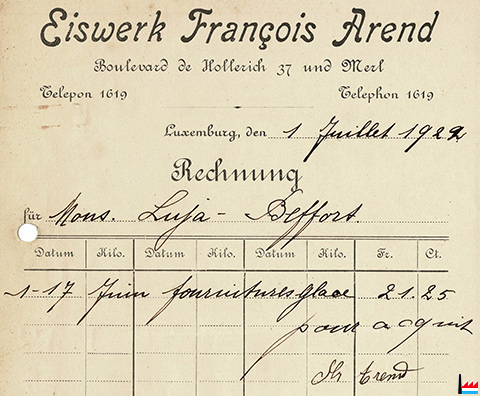 Eiswerk François Arend
Boulevard de Hollerich 37 und Merl
Telepon 1619 Telephon 1619
Luxemburg, den 1 Juillet 1922
Rechnung
für Mons. Luja-Beffort.
Datum Kilo. Datum Kilo. Datum Kilo. Fr. Ct.
1-17 Juin fournitures glace 21.25
pour acquit
Arend